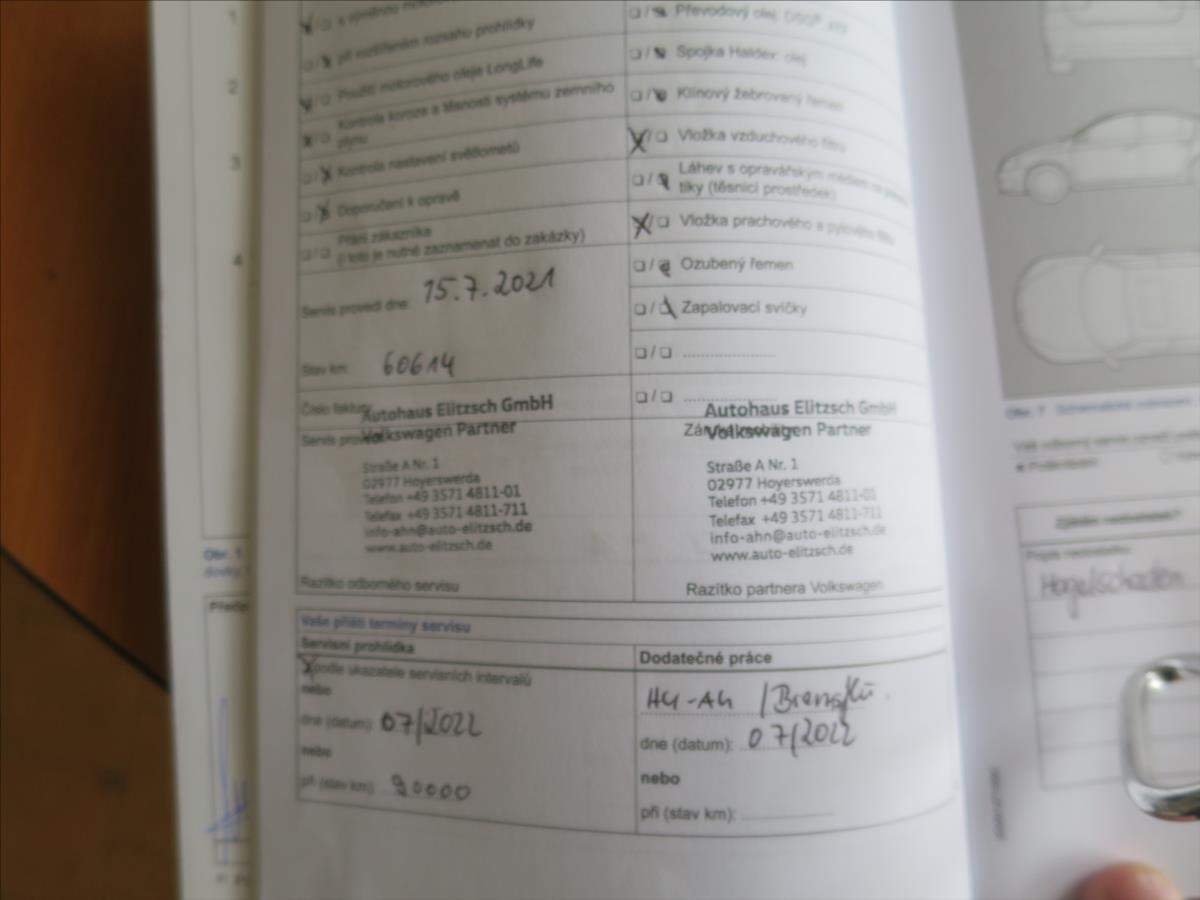 1
2
3
4
při rozšířeném rozsahu prohlídky
Použití motorového oleje LongLife
Kontrola koroze a těsnosti systému zemního
plynu
Kontrola nastavení světlometů
Doporučení k opravě
Přání zákazníka
(i toto je nutné zaznamenat do zakázky)
Servis provedl dne: 15.7.2021
Stav km: 60614
Číslo faktury
Autohaus Elitzsch GmbH
Volkswagen Partner
Servis
Straße A Nr. 1
02977 Hoyerswerda
Telefon +49 3571 4811-01
Telefax +49 3571 4811-711
info-ahn@auto-elitzsch.de
www.auto-elitzsch.de
Razítko odborného servisu
Převodový olej,
Spojka Haldex: olej
Klínový žebrovaný řemen
Vložka vzduchového filtru
Láhev s opravářským
tiky (těsnicí prostředek)
Vložka prachového a pylového filtru
Ozubený řemen
Zapalovací svíčky
Autohaus Elitzsch GmbH
Volkswagen Partner
Straße A Nr. 1
02977 Hoyerswerda
Telefon +49 3571 4811-01
Telefax +49 3571 4811-711
info-ahn@auto-elitzsch.de
www.auto-elitzsch.de
Razítko partnera Volkswagen
Vaše příští termíny servisu
Servisní prohlídka
podle ukazatele servisních intervalů
nebo
dne (datum): 07/2022
nebo
při (stav km): 90000
Dodatečné práce
dne (datum): 07/2022
nebo
při (stav km):
Hagelschaden